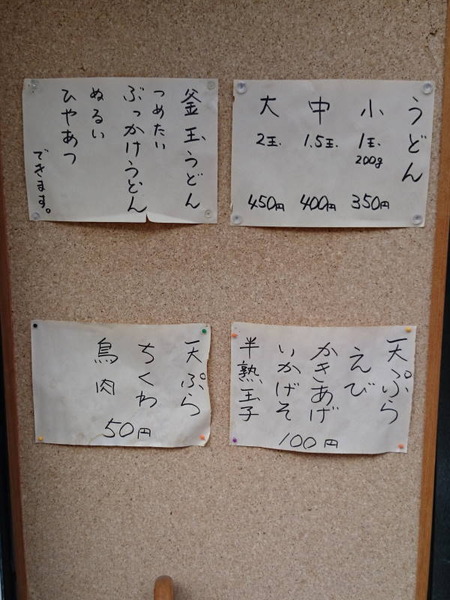 うどん
小 1玉 200g 350円
中 1.5玉 400円
大 2玉 450円
釜玉うどん
つめたい
ぶっかけうどん
ぬるい
ひやあつ
できます。
天ぷら
えび
かきあげ
いかげそ
半熟玉子
100円
天ぷら
ちくわ
鳥肉
50円